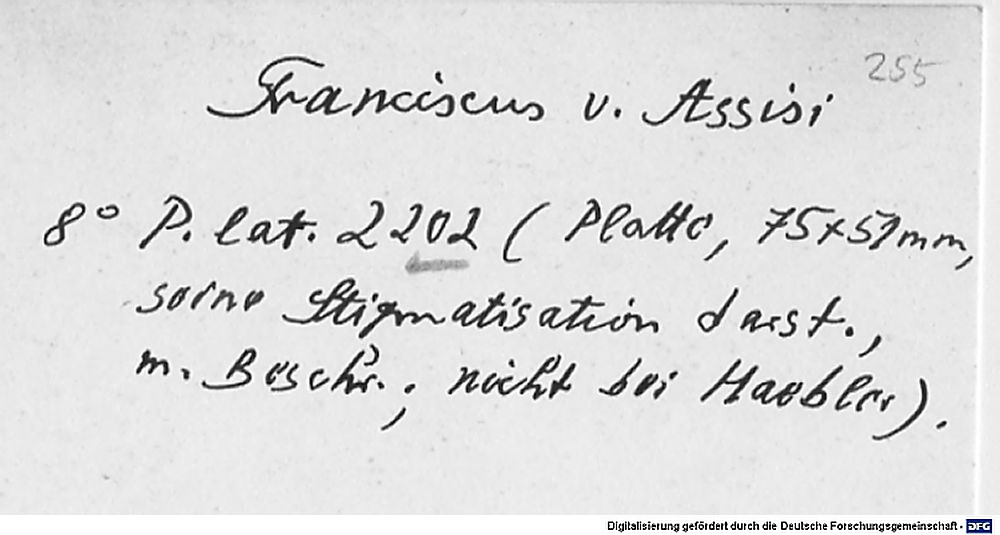 255
Franciscus v. Assisi
8° P. lat. 2202 (Platte, 75x51mm,
seine Stigmatisation darst.,
m. Beschr.; nicht bei Haebler).
Digitalisierung gefördert durch die Deutsche Forschungsgemeinschaft - DFG